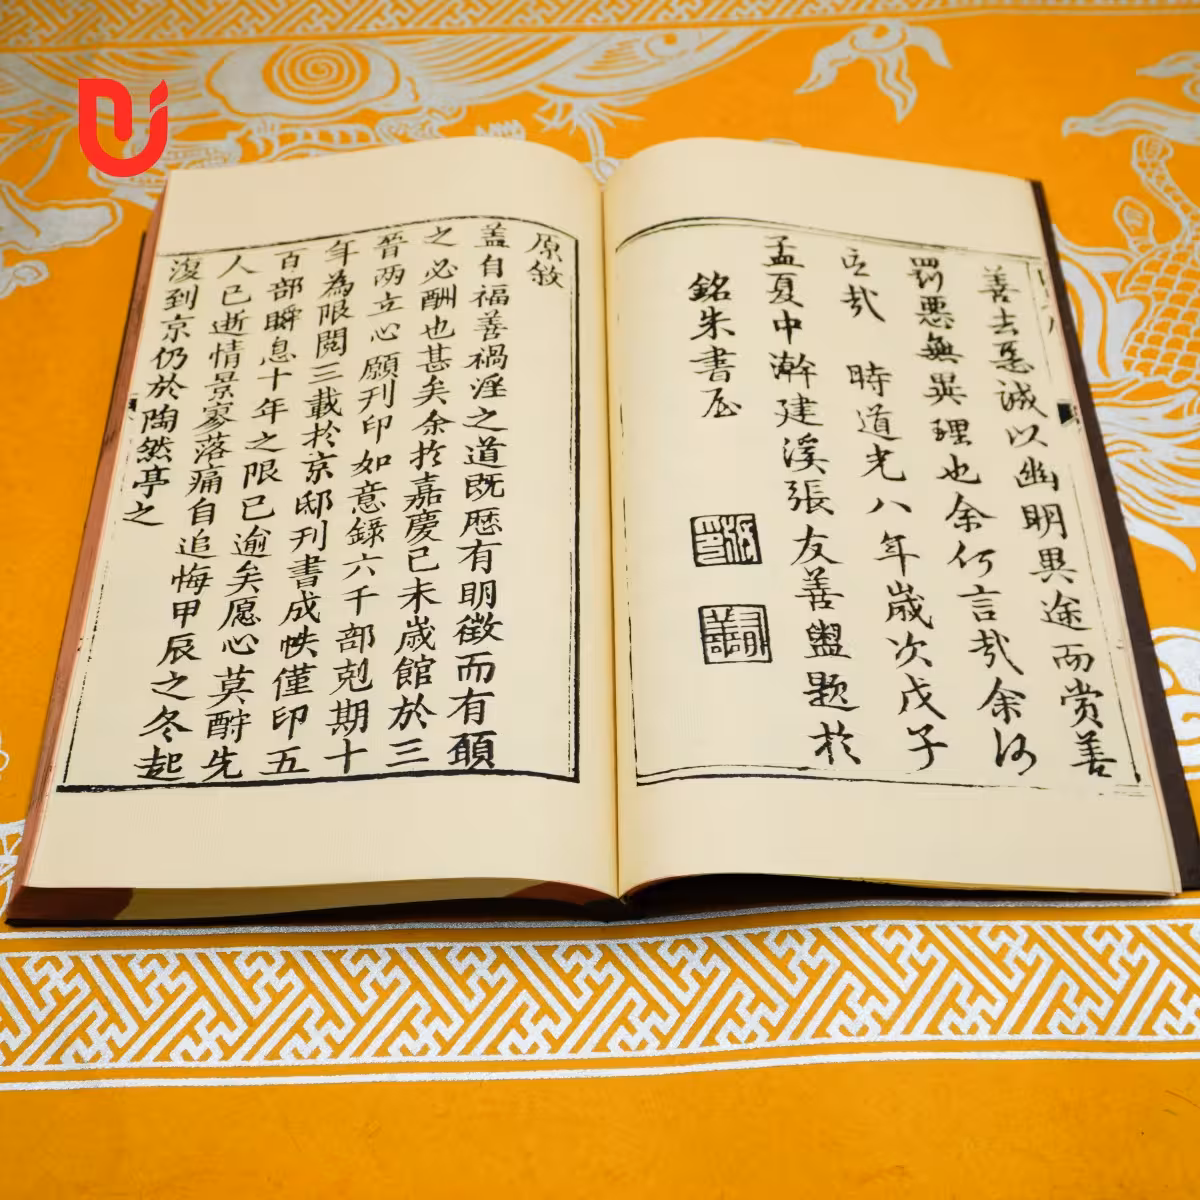 善去惡誠以幽明異途而赏善
罰悪無異理也余何言哉余何
言哉 時道光八年歲次戊子
孟夏中澣建溪張友善盥題於
銘朱書屋
原敘
盖自福善禍淫之道既歷有明徵而有顕
之必酬也甚矣余於嘉慶己未歲館於三
晉兩立心願刊印如意錄六千部剋期十
年為限閲三載於京邸刊書成帙僅印五
百部瞬息十年之限已逾矣愿心莫酧先
人已逝情景寥落痛自追悔甲辰之冬起
復到京仍於陶然亭之